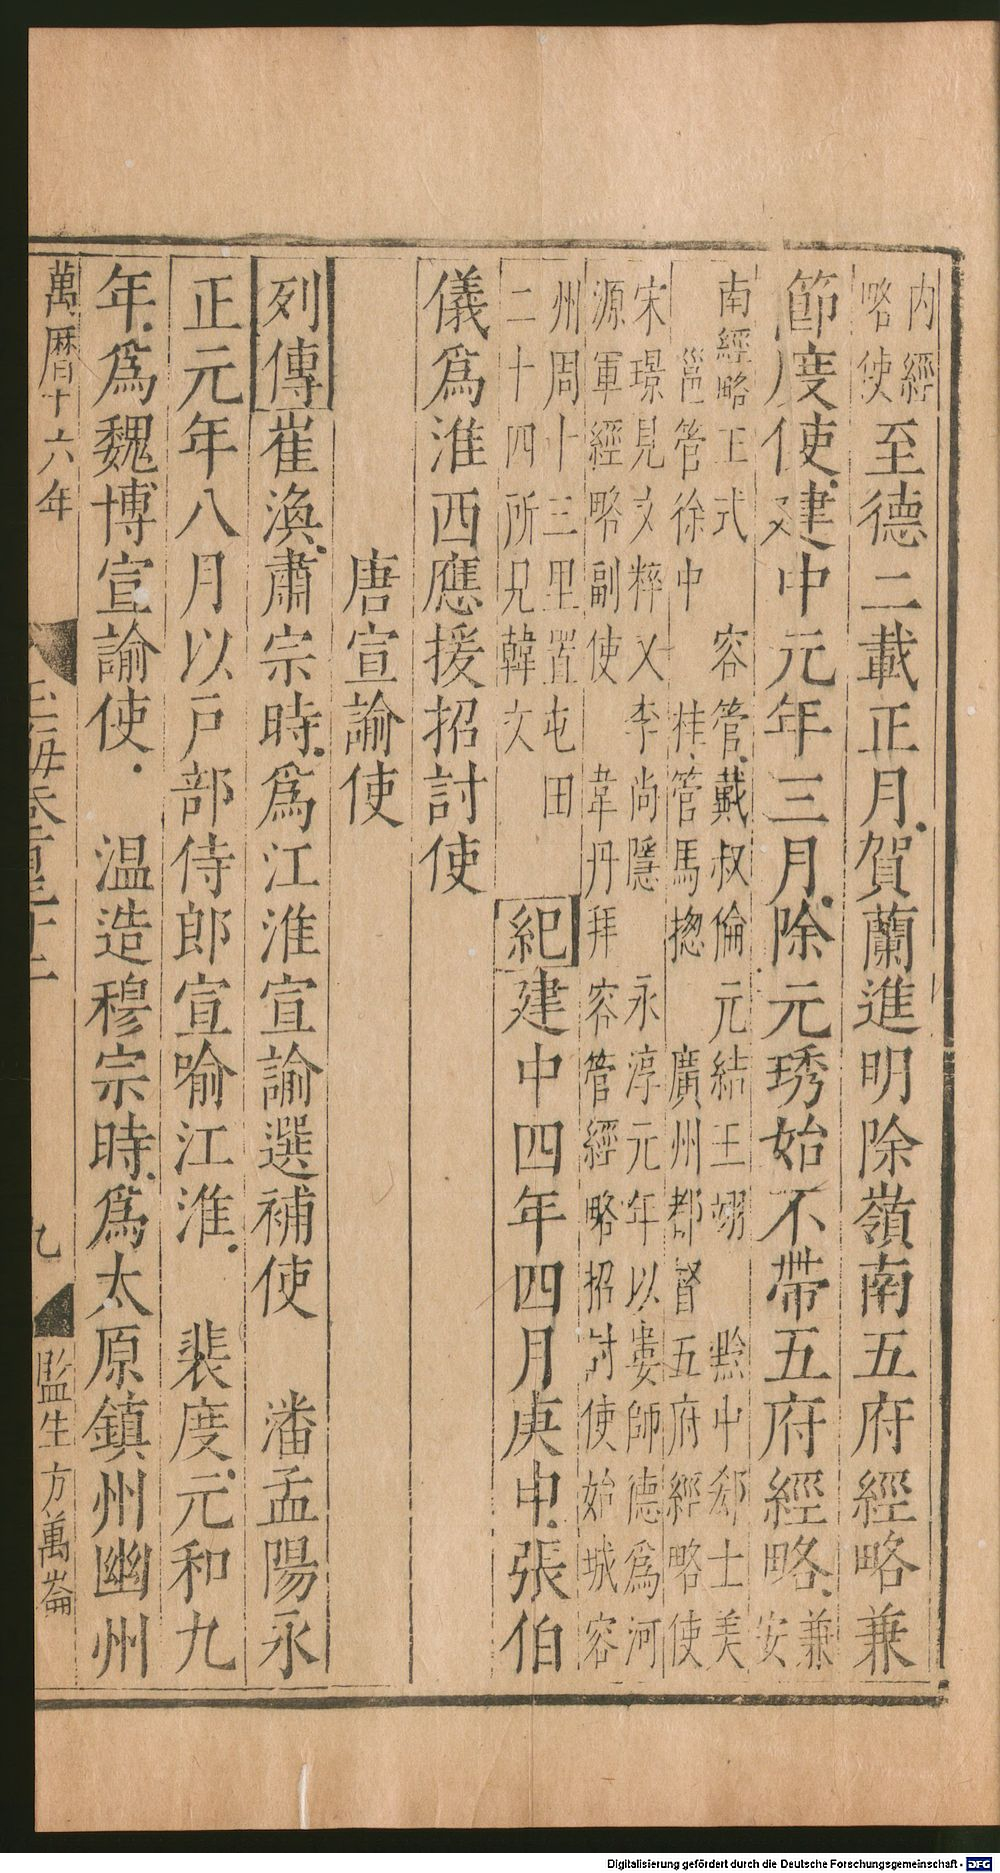 内經
略使
至德二載正月賀蘭進明除嶺南五府經略兼
節度使建中元年三月除元琇始不帶五府經略
兼
安
南經略王式　容管戴叔倫　元結王翃　黔中郗士美
邕管徐申　桂管馬摠　廣州都督五府經略使
宋璟見文粹又李尚隱　永淳元年以婁師德爲河
源軍經略副使　韋丹拜容管經略招討使始城容
州周十三里置屯田
二十四所見韓文
紀建中四年四月庚申張伯
儀爲淮西應援招討使
唐宣諭使
列傳崔渙肅宗時爲江淮宣諭選補使　潘孟陽永
正元年八月以戸部侍郎宣喻江淮　裴度元和九
年爲魏博宣諭使　温造穆宗時爲太原鎮州幽州
萬曆十六年
玉海卷百三十二
九
監生方萬崙
Digitalisierung gefördert durch die Deutsche Forschungsgemeinschaft - DFG